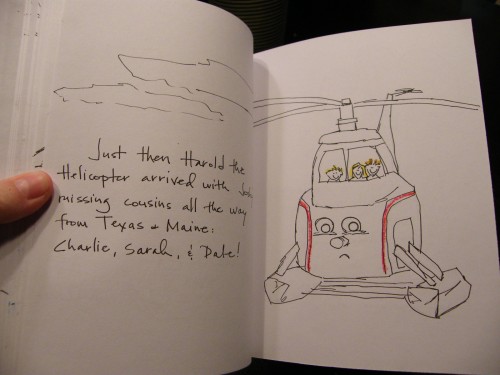 Just then Harold the
Helicopter arrived with
missing cousins all the way
from Texas & Maine:
Charlie, Sarah, & Date!